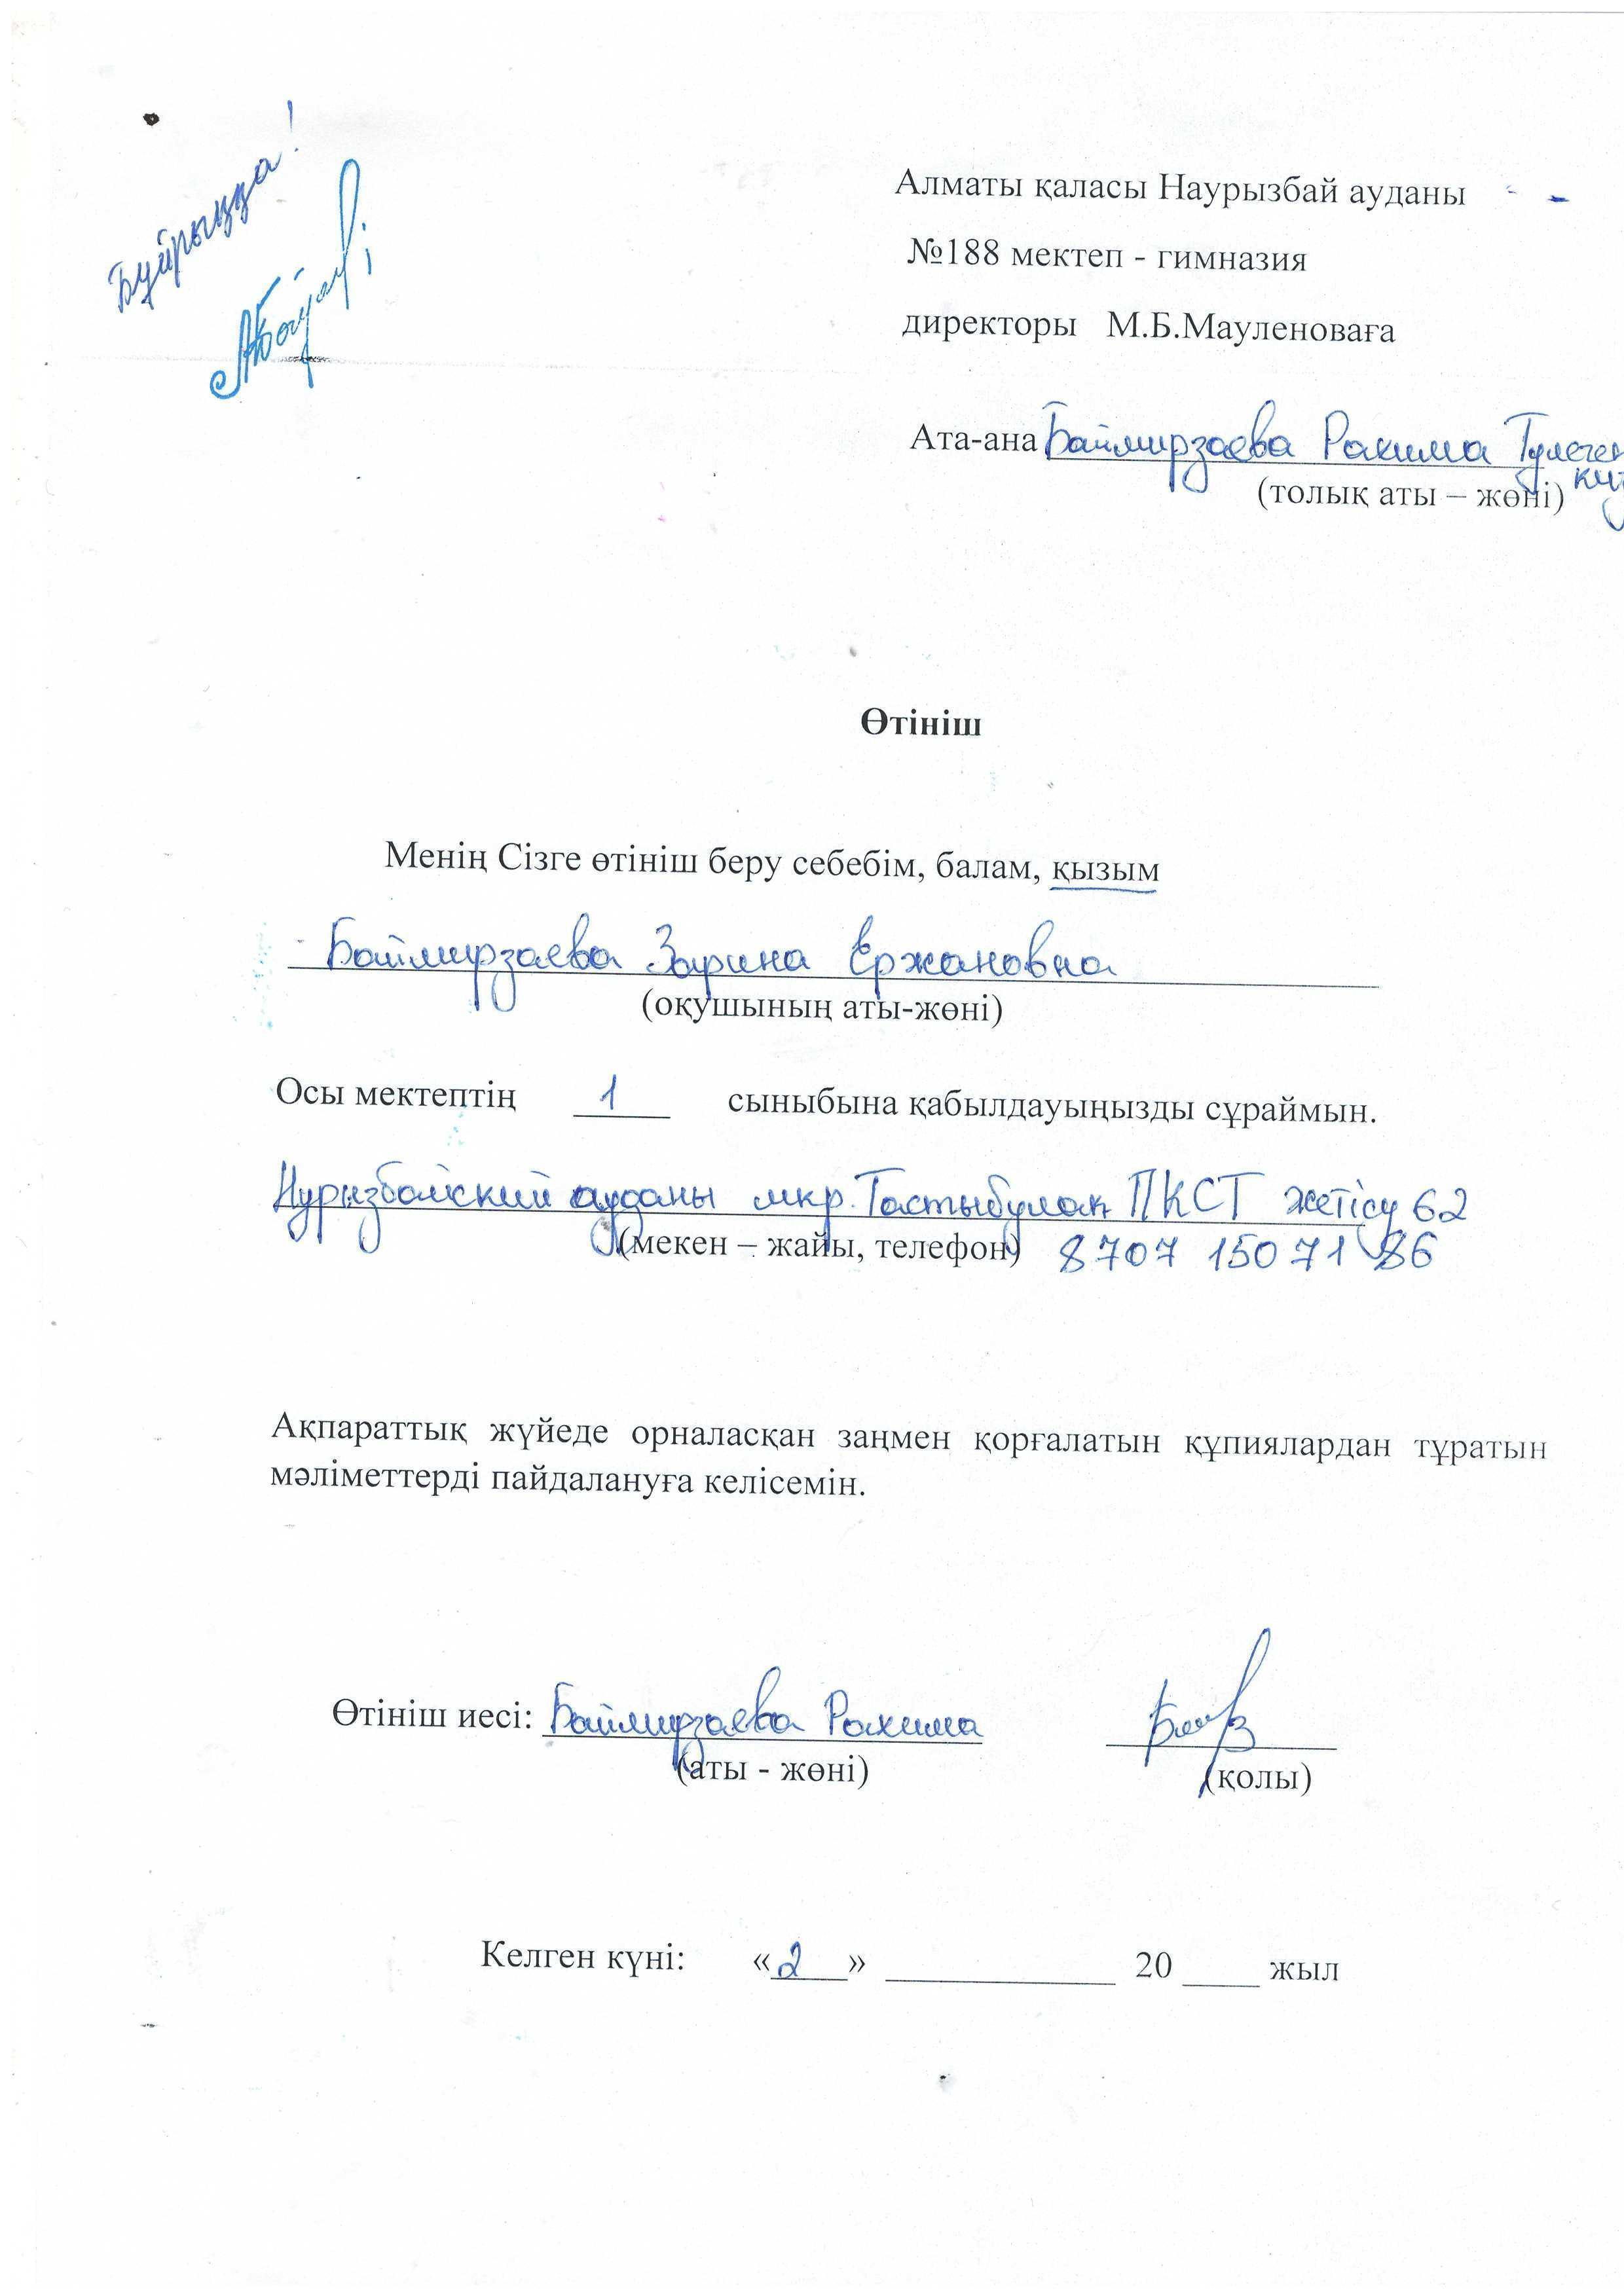 Бұйрыққа!
Алматы қаласы Наурызбай ауданы
№188 мектеп - гимназия
директоры М.Б.Мауленоваға
Ата-ана Баймирзаева Рахима Тулеген
(толық аты – жөні)
Өтініш
Менің Сізге өтініш беру себебім, балам, қызым
Баймирзаева Зарина Ержановна
(оқушының аты-жөні)
Осы мектептің 1 сыныбына қабылдауыңызды сұраймын.
Нурызбайский ауданы мкр. Тастыбулак ПКСТ жетісу 62
(мекен – жайы, телефон) 8707 150 71 86
Ақпараттық жүйеде орналасқан заңмен қорғалатын құпиялардан тұратын
мәліметтерді пайдалануға келісемін.
Өтініш иесі: Баймирзаева Рахима
(аты - жөні) (қолы)
Келген күні: «2» ____________ 20 ____ жыл